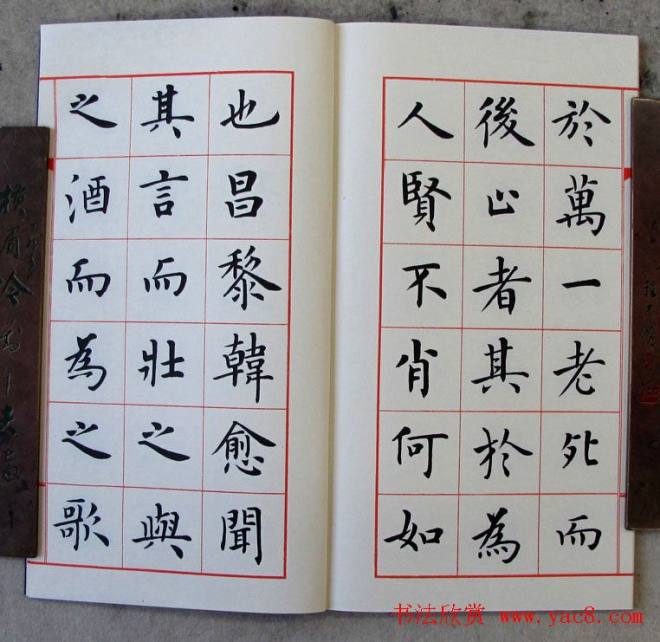 於萬一老死而
後止者其於為
人賢不肖何如
也昌黎韓愈聞
其言而壯之與
之酒而為之歌
橫眉冷對千夫
书法欣赏 www.yac8.com